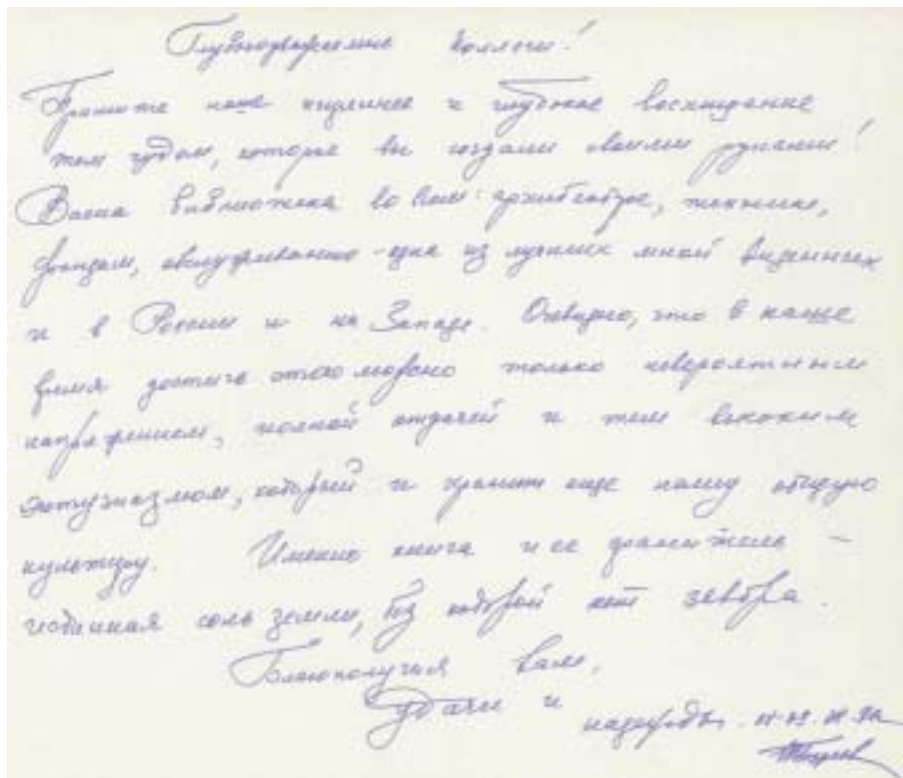 Глубокоуважаемые коллеги!
Примите наше искреннее и глубокое восхищение
тем чудом, которое вы создали своими руками!
Ваша библиотека во всем: архитектуре, технике,
фондам, обслуживанию - одна из лучших мной виденных
и в России и на Западе. Очевидно, что в наше
время достичь этого можно только невероятным
напряжением, полной отдачей и тем высоким
энтузиазмом, который и хранит еще нашу общую
культуру. Именно книга и ее хранители -
истинная соль земли, без которой нет завтра.
Благополучия вам,
удачи и
надежды.